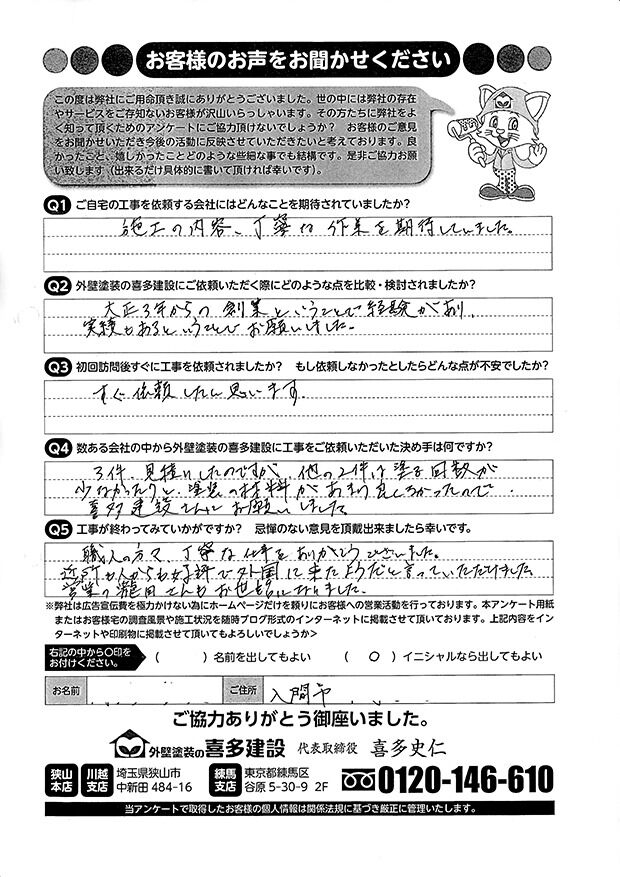 お客様のお声をお聞かせください
この度は弊社にご用命頂き誠にありがとうございました。世の中には弊社の存在
やサービスをご存知ないお客様が沢山いらっしゃいます。その方たちに弊社をよ
く知って頂くためのアンケートにご協力頂けないでしょうか？　お客様のご意見
をお聞かせいただき今後の活動に反映させていただきたいと考えております。良
かったこと、嬉しかったことどのような些細な事でも結構です。是非ご協力お願
い致します（出来るだけ具体的に書いて頂ければ幸いです）。
Q1 ご自宅の工事を依頼する会社にはどんなことを期待されていましたか？
施工の内容、丁寧な作業を期待していました。
Q2 外壁塗装の喜多建設にご依頼いただく際にどのような点を比較・検討されましたか？
大正3年からの創業ということで経験があり、
実績もあるということでお願いしました。
Q3 初回訪問後すぐに工事を依頼されましたか？　もし依頼しなかったとしたらどんな点が不安でしたか？
すぐ依頼したと思います。
Q4 数ある会社の中から外壁塗装の喜多建設に工事をご依頼いただいた決め手は何ですか？
3件、見積りしたのですが、他の2件は塗る回数が
少なかったりと、塗装の材料があまり良くなかったので
喜多建設さんにお願いしました
Q5 工事が終わってみていかがですか？　忌憚のない意見を頂戴出来ましたら幸いです。
職人の方々、丁寧な仕事をありがとうございました。
近所の人からも好評で外国に来たようだと言っていただけました。
営業の瀧田さんもお世話になりました。
※弊社は広告宣伝費を極力かけない為にホームページだけを頼りにお客様への営業活動を行っております。本アンケート用紙
またはお客様宅の調査風景や施工状況を随時ブログ形式のインターネットに掲載させて頂いております。上記内容をイン
ターネットや印刷物に掲載させて頂いてもよろしいでしょうか＞
右記の中から〇印を
お付けください。
（　　）名前を出してもよい　　（ ○ ）イニシャルなら出してもよい
お名前　ご住所　入間市
ご協力ありがとう御座いました。
外壁塗装の喜多建設　代表取締役　喜多史仁
狭山
本店
川越
支店
埼玉県狭山市
中新田 484-16
練馬
支店
東京都練馬区
谷原 5-30-9　2F
0120-146-610
当アンケートで取得したお客様の個人情報は関係法規に基づき厳正に管理いたします。